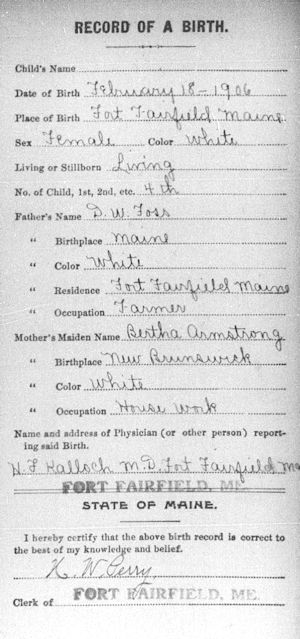 RECORD OF A BIRTH.
Child's Name
Date of Birth February 18-1906
Place of Birth Fort Fairfield Maine
Sex Female Color White
Living or Stillborn Living
No. of Child, 1st, 2nd, etc. 4th
Father's Name D. W. Foss
" Birthplace Maine
" Color White
" Residence Fort Fairfield Maine
" Occupation Farmer
Mother's Maiden Name Bertha Armstrong
" Birthplace New Brunswick
" Color White
" Occupation House Work
Name and address of Physician (or other person) report-
ing said Birth.
H. F. Kalloch M.D. Fort Fairfield Me
FORT FAIRFIELD, ME.
STATE OF MAINE.
I hereby certify that the above birth record is correct to
the best of my knowledge and belief.
N. W. Perry
Clerk of FORT FAIRFIELD, ME.